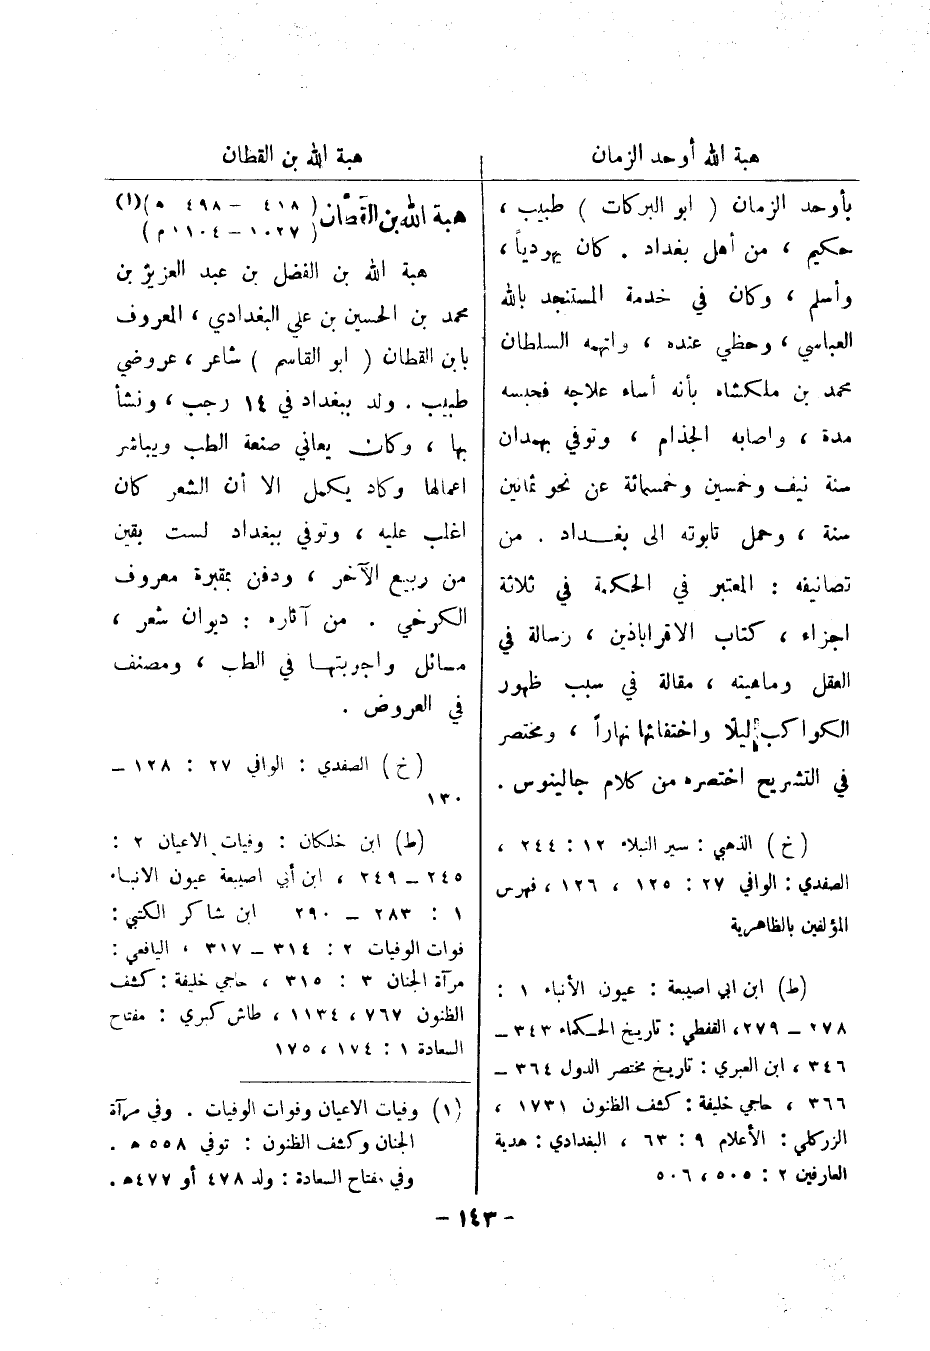 هبة الله أوحد الزمان
بأوحد الزمان ( ابو البركات ) طبيب ،
حكيم ، من أهل بغداد . كان يهودياً ،
وأسلم ، وكان في خدمة المستنجد بالله
العباسي ، وحظي عنده ، واتهمه السلطان
محمد بن ملكشاه بأنه أساء علاجه فحبسه
مدة ، واصابه الجذام ، وتوفي بهمدان
سنة نيف وخمسين وخمسمائة عن نحو ثمانين
سنة ، وحمل تابوته الى بغداد . من
تصانيفه : المعتبر في الحكمة في ثلاثة
اجزاء ، كتاب الاقراباذين ، رسالة في
العقل وماهيته ، مقالة في سبب ظهور
الكواكب ليلا واختفائها نهاراً ، ومختصر
في التشريح اختصره من كلام جالينوس .
(خ) الذهبي : سير النبلاء ١٢ : ٢٤٤ ،
الصفدي : الوافي ٢٧ : ١٢٥ ، ١٢٦ ، فهرس
المؤلفين بالظاهرية
(ط) ابن ابي اصيبعة : عيون الأنباء ١ :
٢٧٨ – ٢٧٩، القفطي : تاريخ الحكماء ٣٤٣ –
٣٤٦ ، ابن العبري : تاريخ مختصر الدول ٣٦٤ –
٣٦٦ ، حاجي خليفة : كشف الظنون ١٧٣١ ،
الزركلي : الأعلام ٩ : ٦٣ ، البغدادي : هدية
العارفين ٢ : ٥٠٥ ، ٥٠٦
هبة الله بن القطان
هبة الله بن القطان ( ٤١٨ – ٤٩٨ ه )(١)
( ١٠٢٧ – ١١٠٤ م )
هبة الله بن الفضل بن عبد العزيز بن
محمد بن الحسين بن علي البغدادي ، المعروف
بابن القطان ( ابو القاسم ) شاعر ، عروضي
طبيب . ولد ببغداد في ١٤ رجب ، ونشأ
بها ، وكان يعاني صنعة الطب ويباشر
اعمالها وكاد يكمل الا أن الشعر كان
اغلب عليه ، وتوفي ببغداد لست بقين
من ربيع الآخر ، ودفن بمقبرة معروف
الكرخي . من آثاره : ديوان شعر ،
مسائل واجوبتها في الطب ، ومصنف
في العروض .
(خ) الصفدي : الوافي ٢٧ : ١٢٨ –
١٣٠
(ط) ابن خلكان : وفيات الاعيان ٢ :
٢٤٥ – ٢٤٩ ، ابن أبي اصيبعة عيون الانباء
١ : ٢٨٣ – ٢٩٠ ابن شاكر الكتبي :
فوات الوفيات ٢ : ٣١٤ – ٣١٧ ، اليافعي :
مرآة الجنان ٣ : ٣١٥ ، حاجي خليفة : كشف
الظنون ٧٦٧ ، ١١٣٤ ، طاش كبري : مفتاح
السعادة ١ : ١٧٤ ، ١٧٥
(١) وفيات الاعيان وفوات الوفيات . وفي مرآة
الجنان وكشف الظنون : توفي ٥٥٨ ه .
وفي مفتاح السعادة : ولد ٤٧٨ أو ٤٧٧ه .
– ١٤٣ –